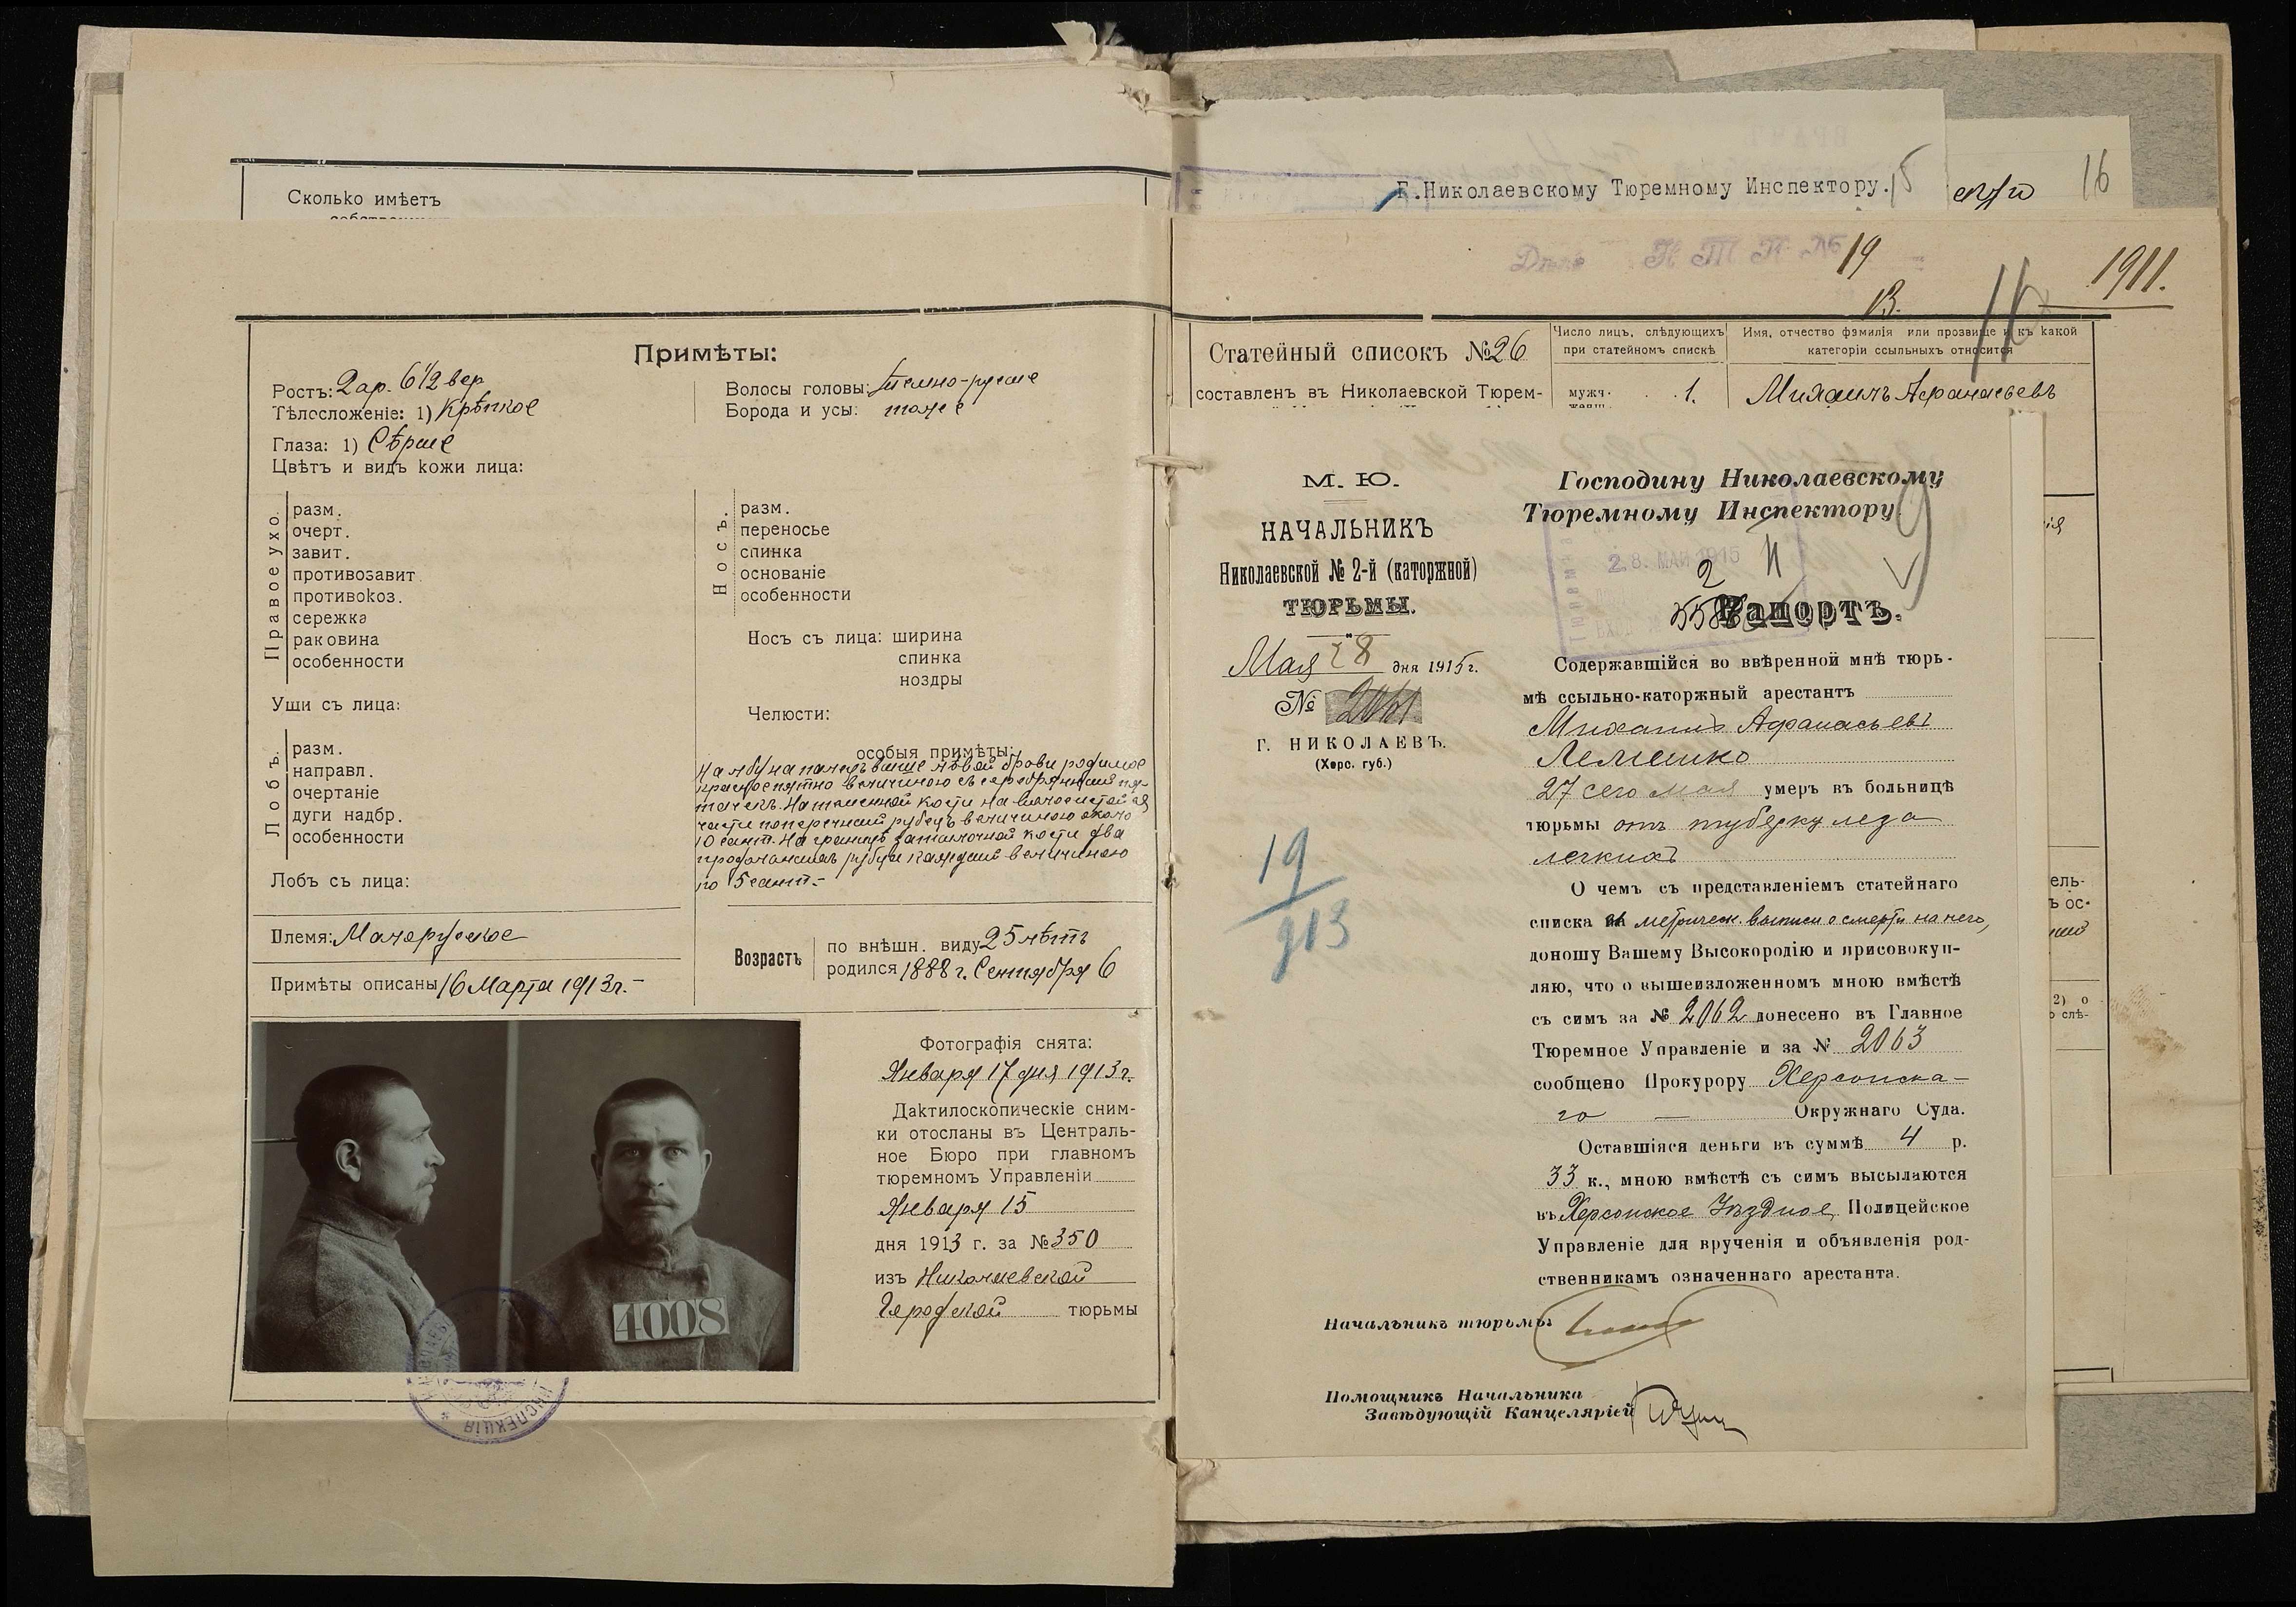 Сколько имѣетъ
Примѣты:
Ростъ: 2 ар. 6 1/2 вер
Тѣлосложеніе: 1) Крѣпкое
Глаза: 1) Сѣрые
Цвѣтъ и видъ кожи лица:
Волосы головы: темно-русые
Борода и усы: тоже
Правое ухо.
разм.
очерт.
завит.
противозавит.
противокоз.
сережка
раковина
особенности
Уши съ лица:
Носъ.
разм.
переносье
спинка
основаніе
особенности
Носъ съ лица: ширина
спинка
ноздры
Челюсти:
Лобъ.
разм.
направл.
очертаніе
дуги надбр.
особенности
Лобъ съ лица:
особыя примѣты:
На лбу на палецъ выше лѣвой брови родимое
красное пятно величиною съ серебрянный пя-
тачекъ. На теменной кости на волосистой ея
части поперечный рубецъ величиною около
10 сант. На границѣ затылочной кости два
продольныхъ рубца каждый величиною
по 5 сант.-
Племя: Малорусское
Примѣты описаны 16 Марта 1913 г.-
Возрастъ
по внѣшн. виду 25 лѣтъ
родился 1888 г. Сентября 6
Фотографія снята:
Января 17 дня 1913 г.
Дактилоскопическіе сним-
ки отосланы въ Централь-
ное Бюро при главномъ
тюремномъ Управленіи
Января 15
дня 1913 г. за № 350
изъ Николаевской
Городской тюрьмы
4008
ИНСПЕКЦІЯ
Г.Николаевскому Тюремному Инспектору.
15
16
Дѣло Н Т И № 19
В.
1911.
16
Статейный списокъ № 26
составленъ въ Николаевской Тюрем-
Число лицъ, слѣдующихъ
при статейномъ спискѣ
мужч. 1.
Имя, отчество фамилія или прозвище и къ какой
категоріи ссыльныхъ относится
Михаилъ Афанасьевъ
М. Ю.
НАЧАЛЬНИКЪ
Николаевской № 2-й (каторжной)
ТЮРЬМЫ.
Мая 28 дня 1915 г.
№ 2061
Г. НИКОЛАЕВЪ.
(Херс. губ.)
19
913
Господину Николаевскому
Тюремному Инспектору
28 МАЙ 1915
2
Рапортъ.
Содержавшійся во ввѣренной мнѣ тюрь-
мѣ ссыльно-каторжный арестантъ
Михаилъ Афанасьевъ
Лемешко
27 сего мая умеръ въ больницѣ
тюрьмы отъ туберкулеза
легкихъ
О чемъ съ представленіемъ статейнаго
списка и метрическ. выписи о смерти на него,
доношу Вашему Высокородію и присовокуп-
ляю, что о вышеизложенномъ мною вмѣстѣ
съ симъ за № 2062 донесено въ Главное
Тюремное Управленіе и за № 2063
сообщено Прокурору Херсонска-
го — Окружнаго Суда.
Оставшіяся деньги въ суммѣ 4 р.
33 к., мною вмѣстѣ съ симъ высылаются
въ Херсонское Уѣздное Полицейское
Управленіе для врученія и объявленія род-
ственникамъ означеннаго арестанта.
Начальникъ тюрьмы
Помощникъ Начальника
Завѣдующій Канцеляріей
ель-
ъ ос-
2) о
о слѣ-